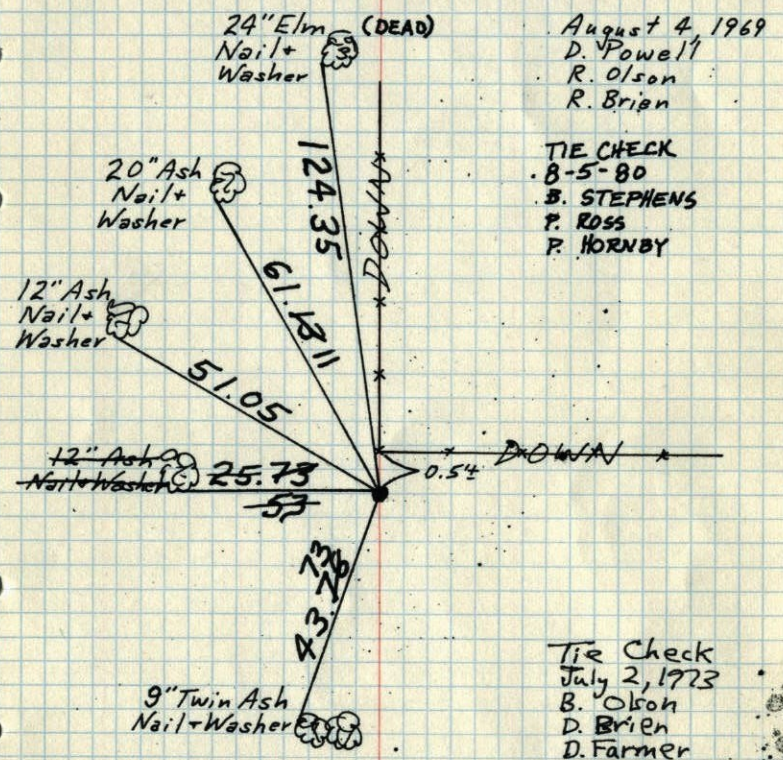 24" Elm (DEAD)
Nail +
Washer
August 4, 1969
D. Powell
R. Olson
R. Brien
TIE CHECK
8-5-80
B. STEPHENS
P. ROSS
P. HORNBY
20" Ash
Nail +
Washer
124.35
DOWN
61.
11
12" Ash
Nail +
Washer
51.05
12" Ash
Nail + Washer
25.73
53
DOWN
0.5'±
73
43.76
9" Twin Ash
Nail + Washer
Tie Check
July 2, 1973
B. Olson
D. Brien
D. Farmer